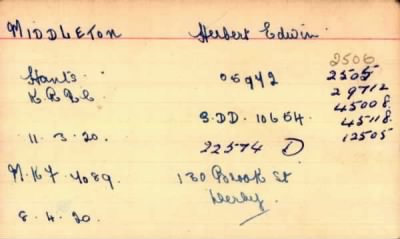 MIDDLETON Herbert Edwin.
2506
Hants. 05942 2505
29712
K.R.R.C. 45008.
S.DD. 10654. 45118.
11.3.20. 22574 D 12505
130 Brook St
Derby.
8.4.20.